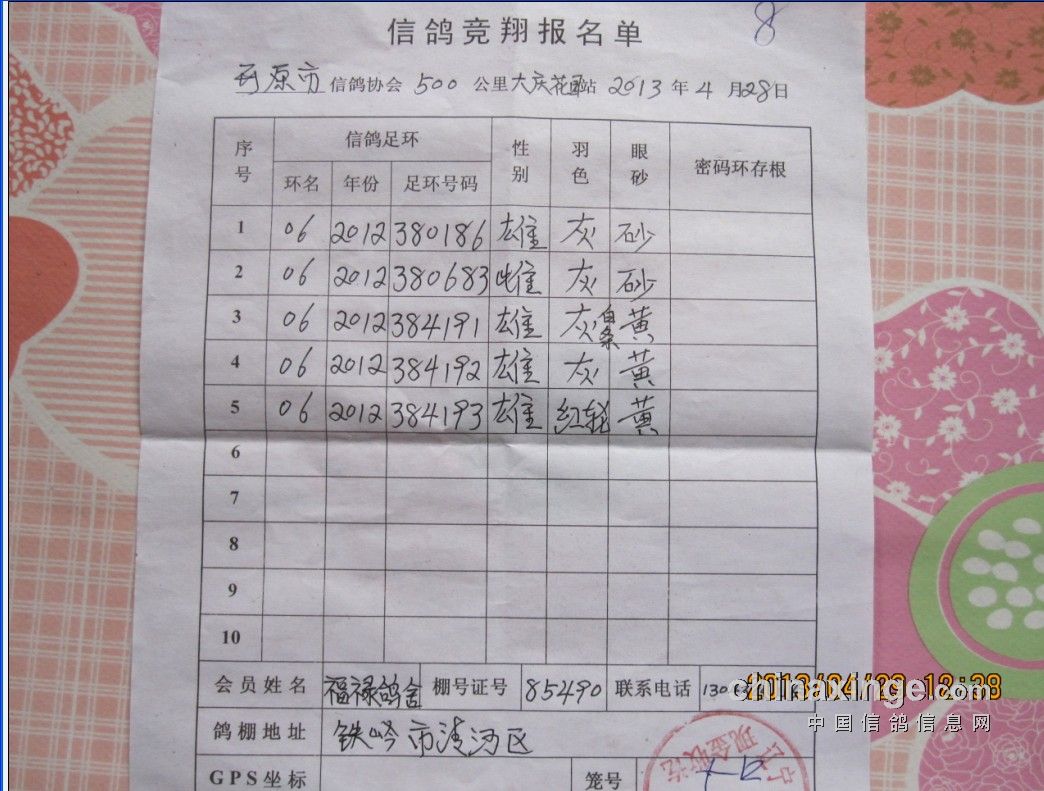 信鸽竞翔报名单 8
开原市信鸽协会 500 公里大庆花园站 2013年4月28日
序号 信鸽足环 性别 羽色 眼砂 密码环存根
环名 年份 足环号码
1 06 2012 380186 雄 灰 砂
2 06 2012 380683 雌 灰 砂
3 06 2012 384191 雄 灰白条 黄
4 06 2012 384192 雄 灰 黄
5 06 2012 384193 雄 红轮 黄
6
7
8
9
10
会员姓名 福禄鸽舍 棚号证号 85490 联系电话 130
2013/04/29 18:28
chinaxinge.com
中国信鸽信息网
鸽棚地址 铁岭市清河区
GPS坐标 笼号
现金收讫